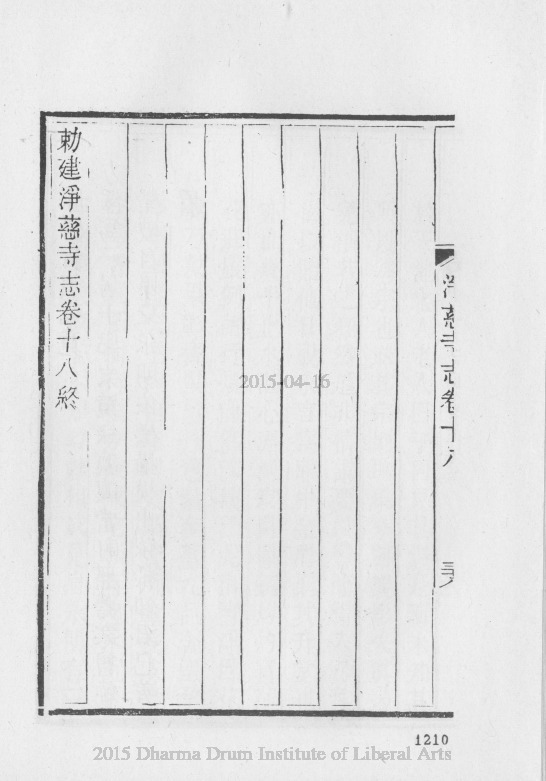 淨慈寺志卷十八
勅建淨慈寺志卷十八終
2015-04-16
1210
2015 Dharma Drum Institute of Liberal Arts